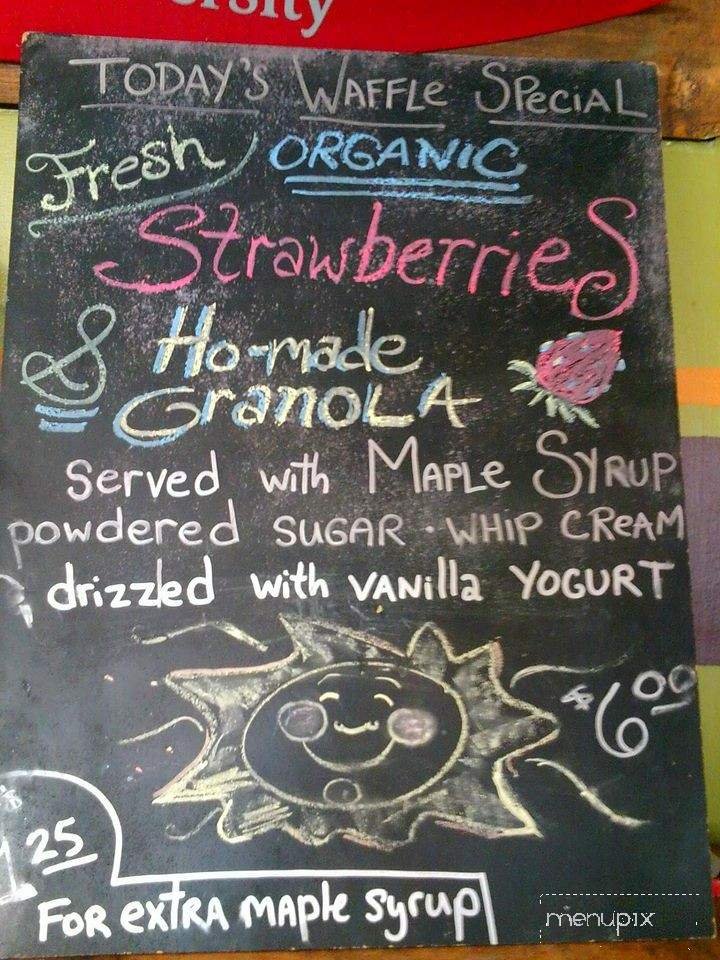 TODAY'S WAFFLE SPECIAL
Fresh ORGANIC
StrawberrieS
& Ho-made
GRANOLA
served with MAPLE SYRUP
powdered SUGAR · WHIP CREAM
drizzled with VANIlla YOGURT
$6.00
$1.25
FOR extRA Maple syrup
menupix